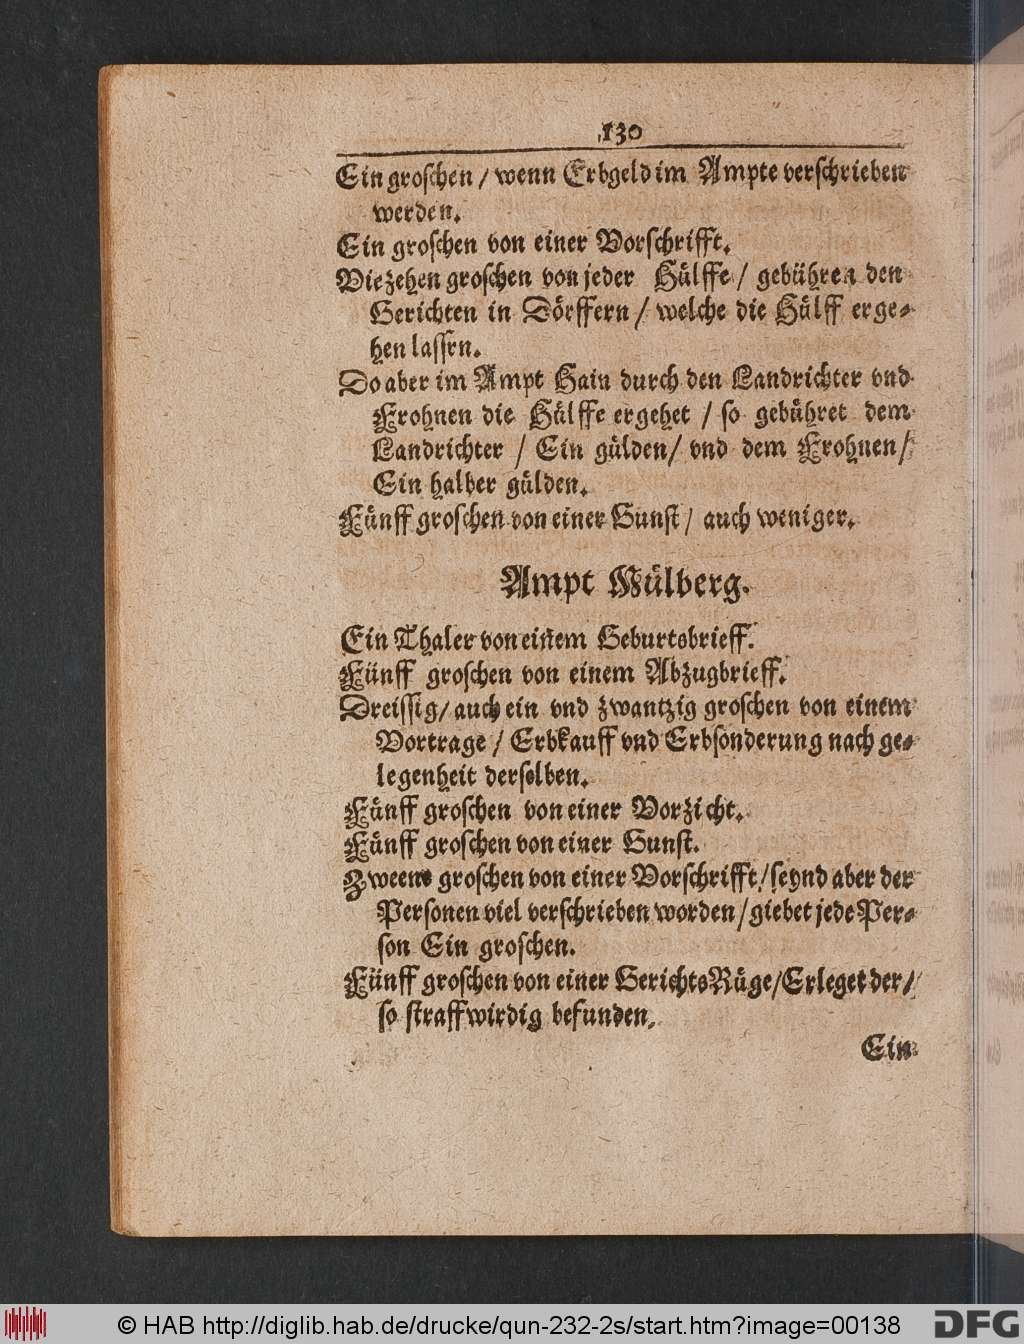 130
Ein groschen / wenn Erbgeld im Ampte verschrieben
werden.
Ein groschen von einer Vorschrifft.
Viezehen groschen von jeder Hülffe / gebühren den
Gerichten in Dörffern / welche die Hülff erge-
hen lassen.
Do aber im Ampt Hain durch den Landrichter vnd
Frohnen die Hülffe ergehet / so gebühret dem
Landrichter / Ein gülden / vnd dem Frohnen /
Ein halber gülden.
Fünff groschen von einer Gunst / auch weniger.
Ampt Mülberg.
Ein Thaler von einem Geburtsbrieff.
Fünff groschen von einem Abzugbrieff.
Dreissig / auch ein vnd zwantzig groschen von einem
Vortrage / Erbkauff vnd Erbsonderung nach ge-
legenheit derselben.
Fünff groschen von einer Vorzicht.
Fünff groschen von einer Gunst.
Zweene groschen von einer Vorschrifft / seynd aber der
Personen viel verschrieben worden / giebet jede Per-
son Ein groschen.
Fünff groschen von einer GerichtsRüge / Erleget der /
so straffwirdig befunden.
Ein
© HAB http://diglib.hab.de/drucke/qun-232-2s/start.htm?image=00138
DFG